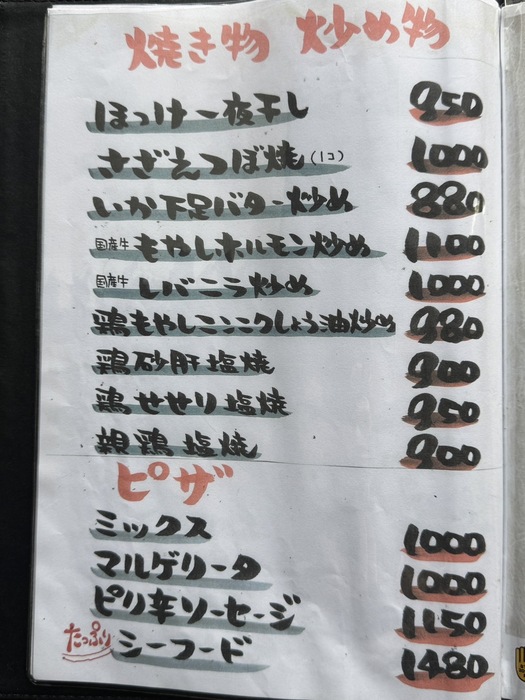 焼き物 炒め物
ほっけ一夜干し 950
さざえつぼ焼(1コ) 1000
いか下足バター炒め 880
国産牛 もやしホルモン炒め 1100
国産牛 レバニラ炒め 1000
鶏もやしこんにくしょう油炒め 980
鶏砂肝塩焼 900
鶏せせり塩焼 950
親鶏塩焼 900
ピザ
ミックス 1000
マルゲリータ 1000
ピリ辛ソーセージ 1150
たっぷり シーフード 1480